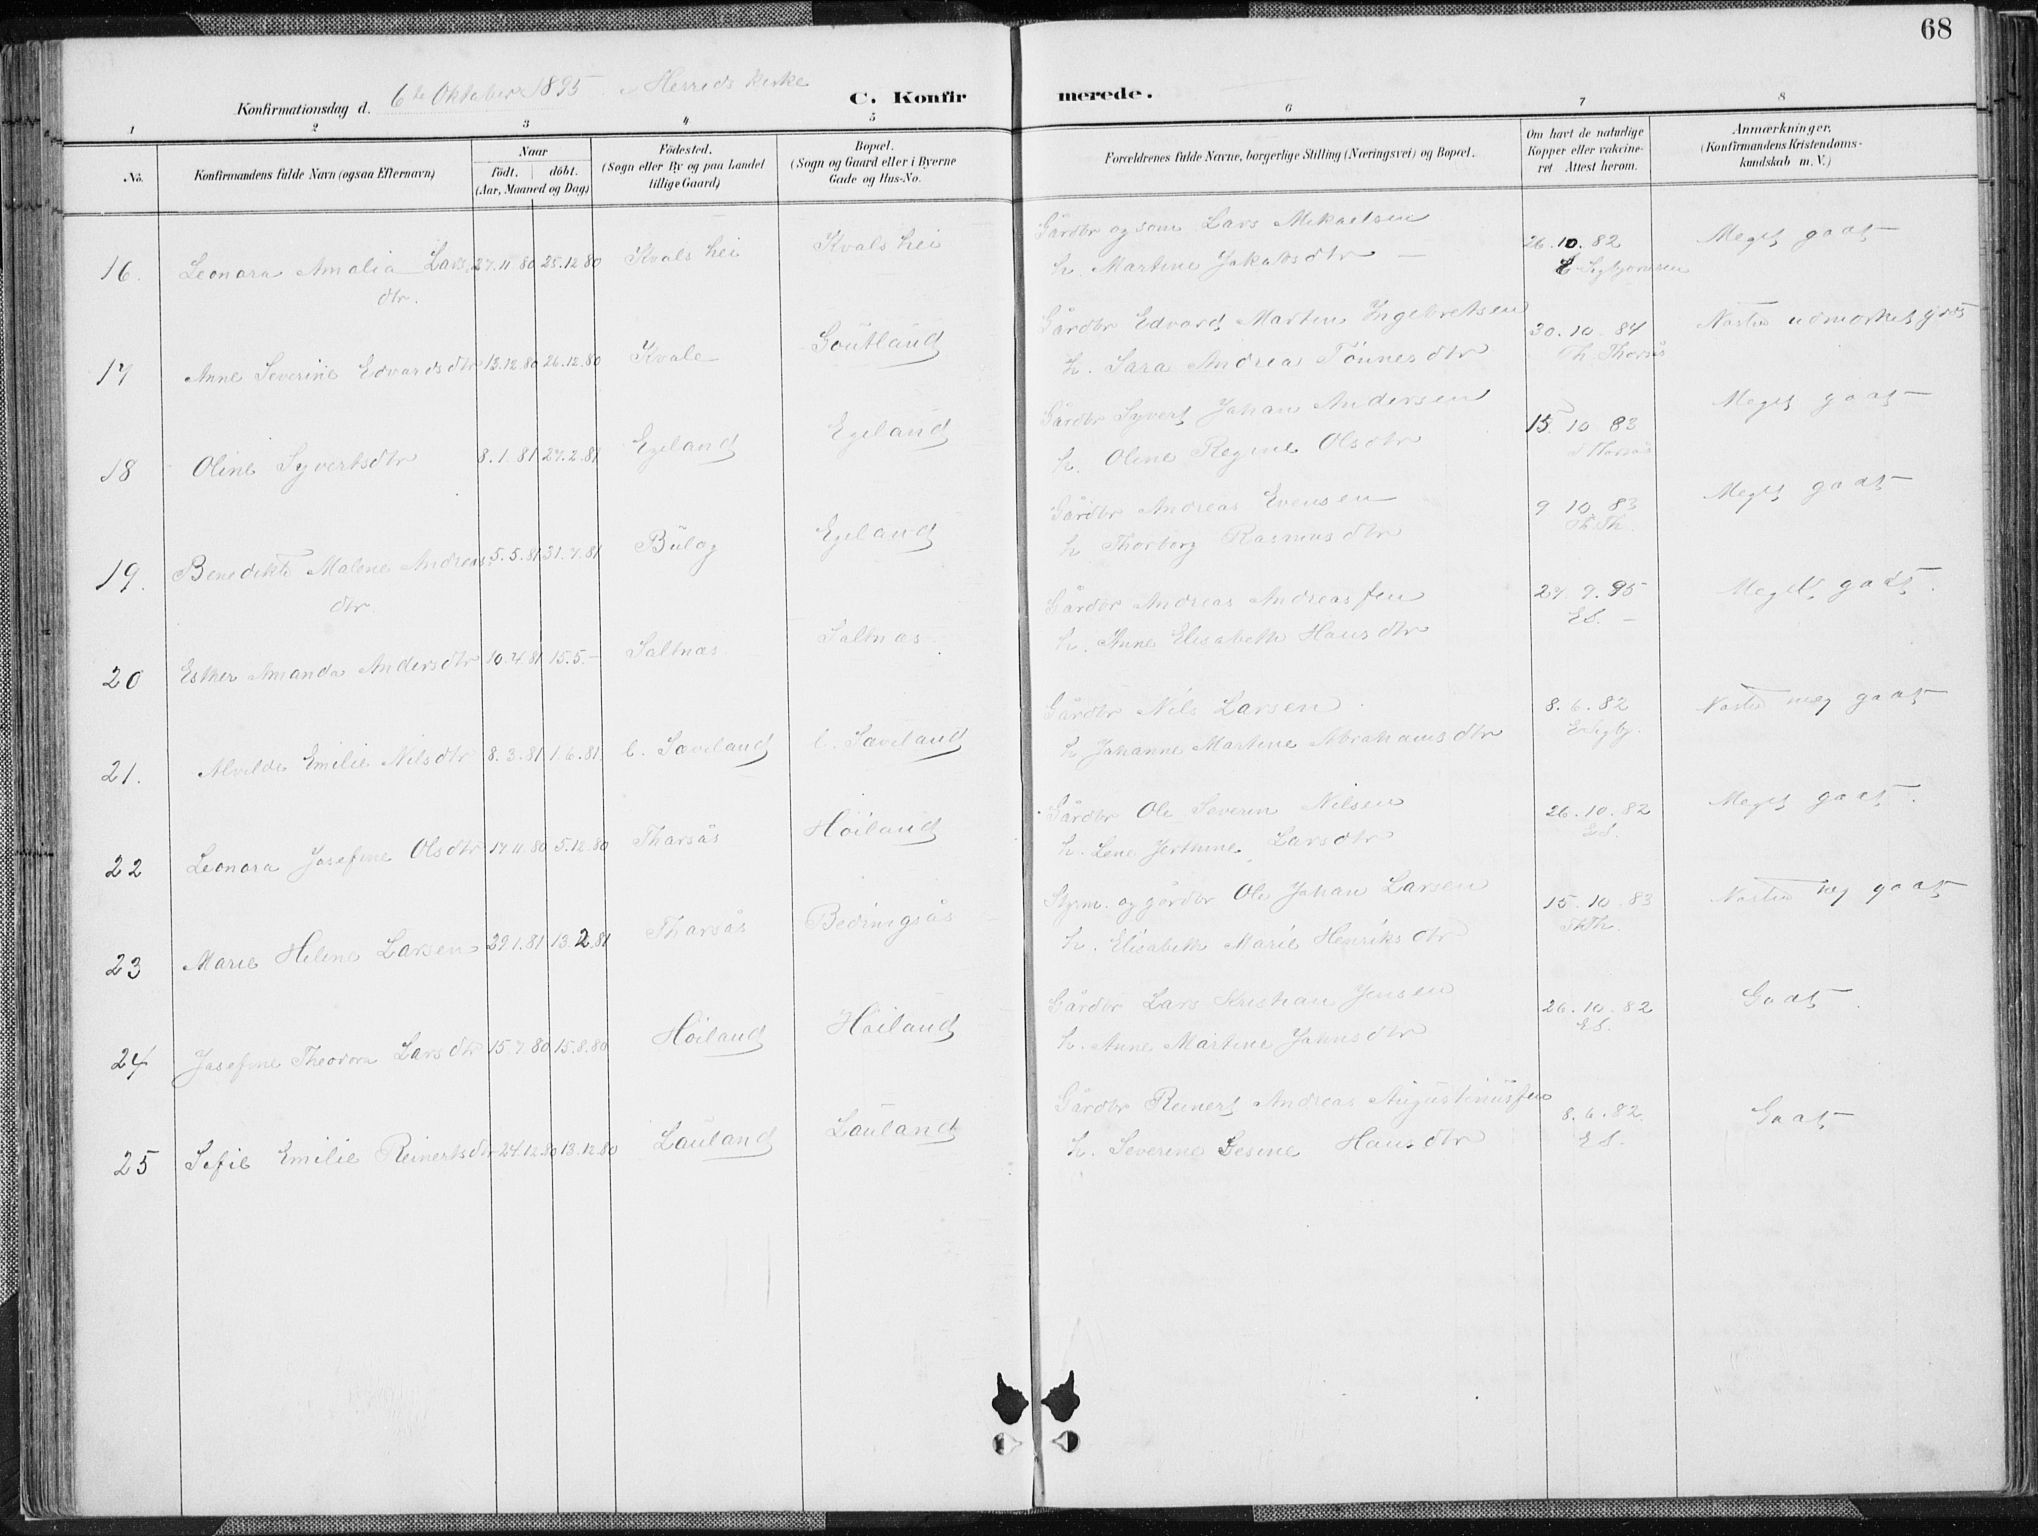 68
Konfirmationsdag d. 6te Oktober 1895 i Herreds kirke
C. Konfirmerede.
1 2 3 4 5 6 7 8
No.
Konfirmandens fulde Navn (ogsaa Efternavn)
Naar
født. | döbt.
(Aar, Maaned og Dag)
Födested.
(Sogn eller By og paa Landet
tillige Gaard)
Bopæl.
(Sogn og Gaard eller i Byerne
Gade og Hus-No.
Forældrenes fulde Navne, borgerlige Stilling (Næringsvei) og Bopæl.
Om havt de naturlige
Kopper eller vakcine-
ret Attest herom.
Anmærkninger.
(Konfirmandens Kristendoms-
kundskab m. V.)
16. Leonora Amalia Lars 27.11.80 25.12.80 Kvalshei Kvalshei
dtr.
Gårdbr og søm Lars Mikaelsen
h. Martine Jakobsdtr
26.10.82
E Sigbjørnsen
Meget godt
17 Anne Severine Edvardsdtr 13.12.80 26.12.80 Kvale Goutland
Gårdbr Edvard Martin Ingebretsen
h. Sara Andrea Tönnesdtr
30.10.84
Th. Thorsås
Næsten udmærket godt
18 Oline Syvertsdtr 8.1.81 27.2.81 Egeland Egeland
Gårdbr Syvert Johan Andersen
h. Oline Regine Olsdtr
15. 10 83
Meget godt
19. Benedikte Malene Andreas 5.5.81 31.7.81 Bulag Egeland
dtr.
Gårdbr Andreas Evensen
h Thorborg Rasmusdtr
9 10.83
Th.Th.
Meget godt
20 Esther Amanda Andersdtr 10.4.81 15.5.— Saltnæs Saltnæs
Gårdbr Andreas Andreassen
h. Anne Elisabeth Hansdtr
27.9.95
ES.
Meget godt.
21. Alvilde Emilie Nilsdtr 8.3.81 1.6.81. l. Saveland l. Saveland
Gårdbr Nils Larsen
h Johanne Martine Abrahamsdtr
8.6.82
ESigbj.
Næsten meg godt
22 Leonora Josefine Olsdtr 17.11.80 5.12.80 Tharsås Höiland
Gårdbr Ole Severin Nilsen
h. Lene Jerthine Larsdtr
26.10.82
ES.
Meget godt.
23 Marie Helene Larsen 29.1.81 13.2.81 Tharsås Bedringsås
Styrm. og gårdbr Ole Johan Larsen
h. Elisabeth Marie Henriksdtr
15.10.83
ThTh.
Næsten meg godt
24 Josefine Theodora Larsdtr 15.7.80 15.8.80 Höiland Höiland
Gårdbr Lars Kristian Jensen
h. Anne Martine Jahnsdtr
26.10.82
ES.
Godt.
25 Sofie Emilie Reinertsdtr 24.12.80 13.12.80 Lauland Lauland
Gårdbr Reinert Andreas Augustinussen
h. Severine Gesine Hansdtr
8.6.82
ES.
Godt